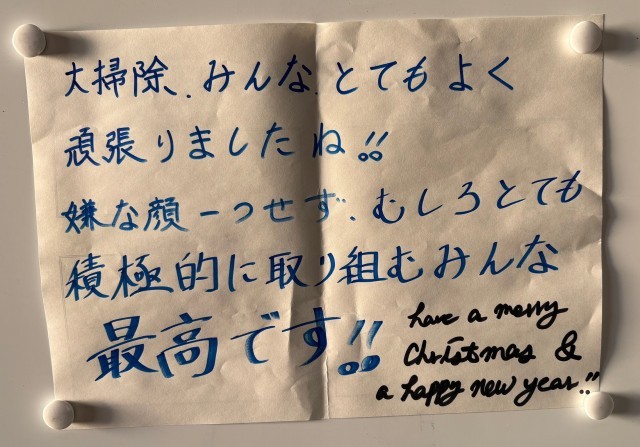 大掃除、みんな、とてもよく
頑張りましたね!!
嫌な顔一つせず、むしろとても
積極的に取り組むみんな
最高です!!
have a merry
Christmas &
a happy new year..!!